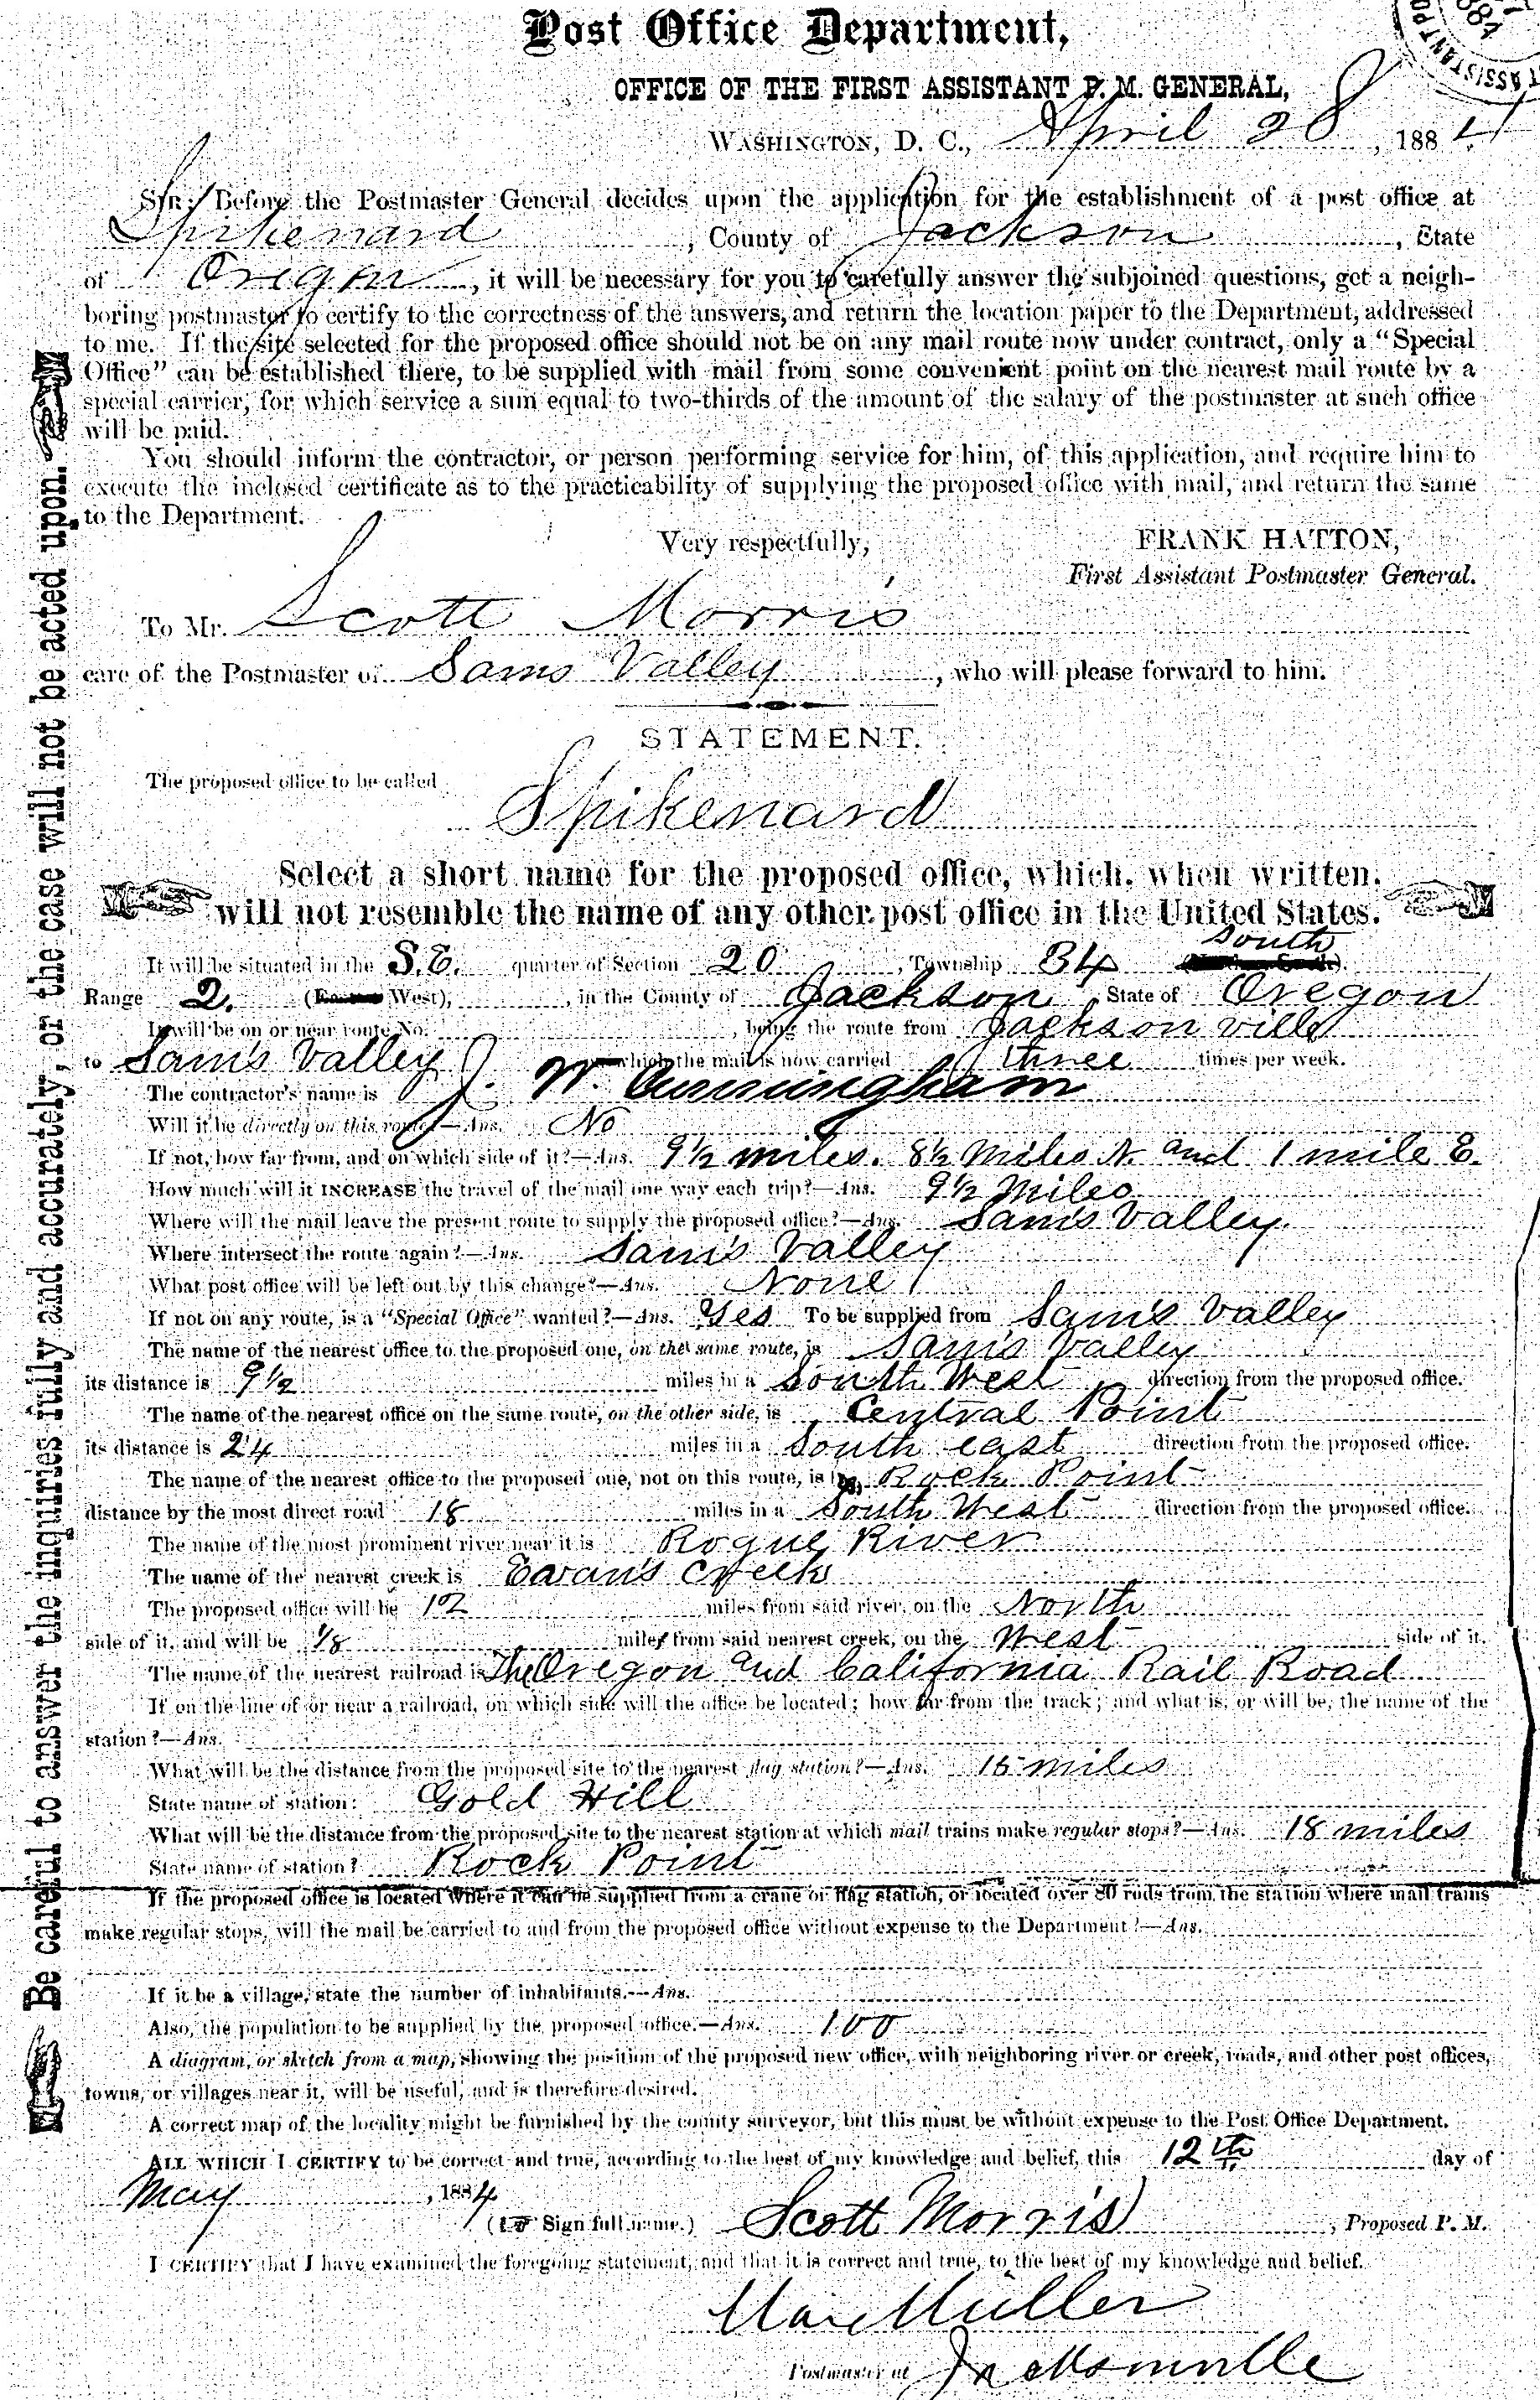 Post Office Department,
OFFICE OF THE FIRST ASSISTANT P. M. GENERAL,
WASHINGTON, D. C., April 28, 1884.
SIR: Before the Postmaster General decides upon the application for the establishment of a post office at
Spikenard, County of Jackson, State
of Oregon, it will be necessary for you to carefully answer the subjoined questions, get a neigh-
boring postmaster to certify to the correctness of the answers, and return the location paper to the Department, addressed
to me. If the site selected for the proposed office should not be on any mail route now under contract, only a "Special
Office" can be established there, to be supplied with mail from some convenient point on the nearest mail route by a
special carrier, for which service a sum equal to two-thirds of the amount of the salary of the postmaster at such office
will be paid.
You should inform the contractor, or person performing service for him, of this application, and require him to
execute the inclosed certificate as to the practicability of supplying the proposed office with mail, and return the same
to the Department.
Very respectfully,
FRANK HATTON,
First Assistant Postmaster General.
To Mr. Scott Morris
care of the Postmaster of Sams Valley, who will please forward to him.
STATEMENT.
The proposed office to be called Spikenard
Select a short name for the proposed office, which, when written,
will not resemble the name of any other post office in the United States.
south
It will be situated in the S.E. quarter of Section 20, Township 34
Range 2. (West), in the County of Jackson, State of Oregon
It will be on or near route No. , being the route from Jacksonville
to Sam's Valley on which the mail is now carried three times per week.
The contractor's name is J. W. Cunningham
Will it be directly on this route?—Ans. No
If not, how far from, and on which side of it?—Ans. 9½ miles. 8½ Miles N. and 1 mile E.
How much will it INCREASE the travel of the mail one way each trip?—Ans. 9½ Miles
Where will the mail leave the present route to supply the proposed office?—Ans. Sam's Valley.
Where intersect the route again?—Ans. Sam's Valley
What post office will be left out by this change?—Ans. None
If not on any route, is a "Special Office" wanted?—Ans. Yes To be supplied from Sam's Valley
The name of the nearest office to the proposed one, on the same route, is Sam's Valley
its distance is 9½ miles in a South West direction from the proposed office.
The name of the nearest office on the same route, on the other side, is Central Point
its distance is 24 miles in a South east direction from the proposed office.
The name of the nearest office to the proposed one, not on this route, is Rock Point
distance by the most direct road 18 miles in a South West direction from the proposed office.
The name of the most prominent river near it is Rogue River
The name of the nearest creek is Evan's Creek
The proposed office will be 12 miles from said river, on the North
side of it, and will be ⅛ miles from said nearest creek, on the West side of it.
The name of the nearest railroad is The Oregon and California Rail Road
If on the line of or near a railroad, on which side will the office be located; how far from the track; and what is, or will be, the name of the
station?—Ans.
What will be the distance from the proposed site to the nearest flag station?—Ans. 15 miles
State name of station: Gold Hill
What will be the distance from the proposed site to the nearest station at which mail trains make regular stops?—Ans. 18 miles
State name of station? Rock Point
If the proposed office is located where it can be supplied from a crane or flag station, or located over 80 rods from the station where mail trains
make regular stops, will the mail be carried to and from the proposed office without expense to the Department?—Ans.
If it be a village, state the number of inhabitants.—Ans.
Also, the population to be supplied by the proposed office.—Ans. 100
A diagram, or sketch from a map, showing the position of the proposed new office, with neighboring river or creek, roads, and other post offices,
towns, or villages near it, will be useful, and is therefore desired.
A correct map of the locality might be furnished by the county surveyor, but this must be without expense to the Post Office Department.
ALL WHICH I CERTIFY to be correct and true, according to the best of my knowledge and belief, this 12th day of
May, 1884
(Sign full name.) Scott Morris, Proposed P. M.
I CERTIFY that I have examined the foregoing statement, and that it is correct and true, to the best of my knowledge and belief.
Max Müller
Postmaster at Jacksonville
Be careful to answer the inquiries fully and accurately, or the case will not be acted upon.